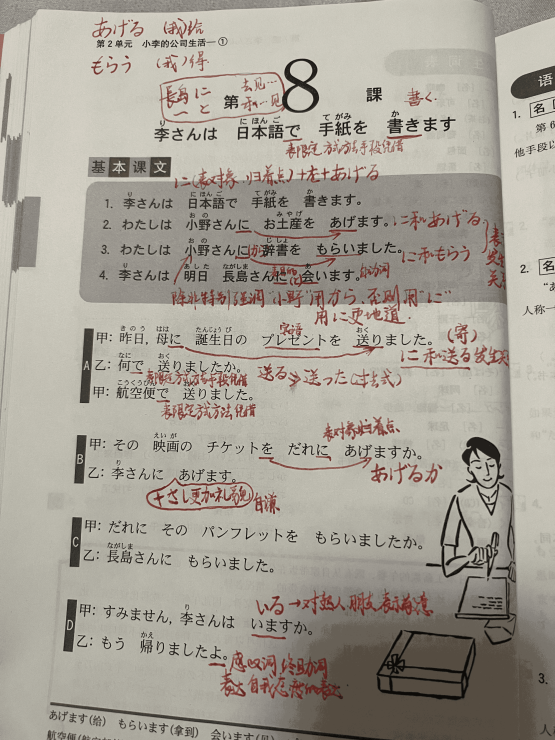 あげる (我)给
第2单元 小李的公司生活—①
もらう (我)得
長島に
一 と
去见…
和…见
第8課
書く
李さんは 日本語で 手紙を 書きます
表限定方式方法手段凭借
基本课文
に(表对象、归着点)+を+あげる
1. 李さんは 日本語で 手紙を 書きます。
2. わたしは 小野さんに お土産を あげます。
に和あげる
3. わたしは 小野さんに 辞書を もらいました。
から
に和もらう
4. 李さんは 明日 長島さんに 会います。
自动词
除非特别强调“小野”用から,否则用“に”
用に更地道.
A
甲: 昨日, 母に 誕生日の プレゼントを 送りました。
宾语
(寄)
に和送る发生
乙: 何で 送りましたか。
表限定方式方法手段凭借
送る→送った(过去式)
甲: 航空便で 送りました。
表限定方式方法凭借
B
甲: その 映画の チケットを だれに あげますか。
表对象归着点
乙: 李さんに あげます。
あげるか
+さし更加礼貌
自谦
C
甲: だれに その パンフレットを もらいましたか。
乙: 長島さんに もらいました。
D
甲: すみません, 李さんは いますか。
いる→对熟人朋友表示
乙: もう 帰りましたよ。
感叹词 终助词
表达自我态度的表达
あげます(给) もらいます(拿到) 会います(见)
语
1. 名
第6
他手段以
2. 名
“あ
人称一
3.